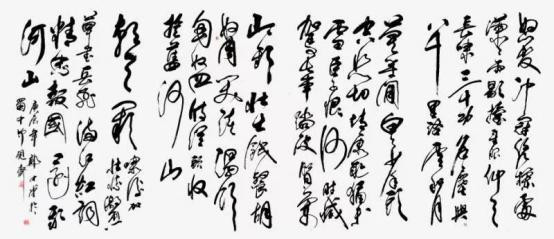 怒发冲冠凭栏处
潇潇雨歇抬望眼仰天
长啸三十功名尘与
八千里路云和月
莫等闲白了少年头
空悲切靖康耻犹未
雪臣子恨何时灭
驾长车踏破贺兰
山缺壮士饥餐胡
奴肉笑谈渴饮
匈奴血待从头收
拾旧河山
朝天阙
草书岳飞满江红词
精忠报国
河山